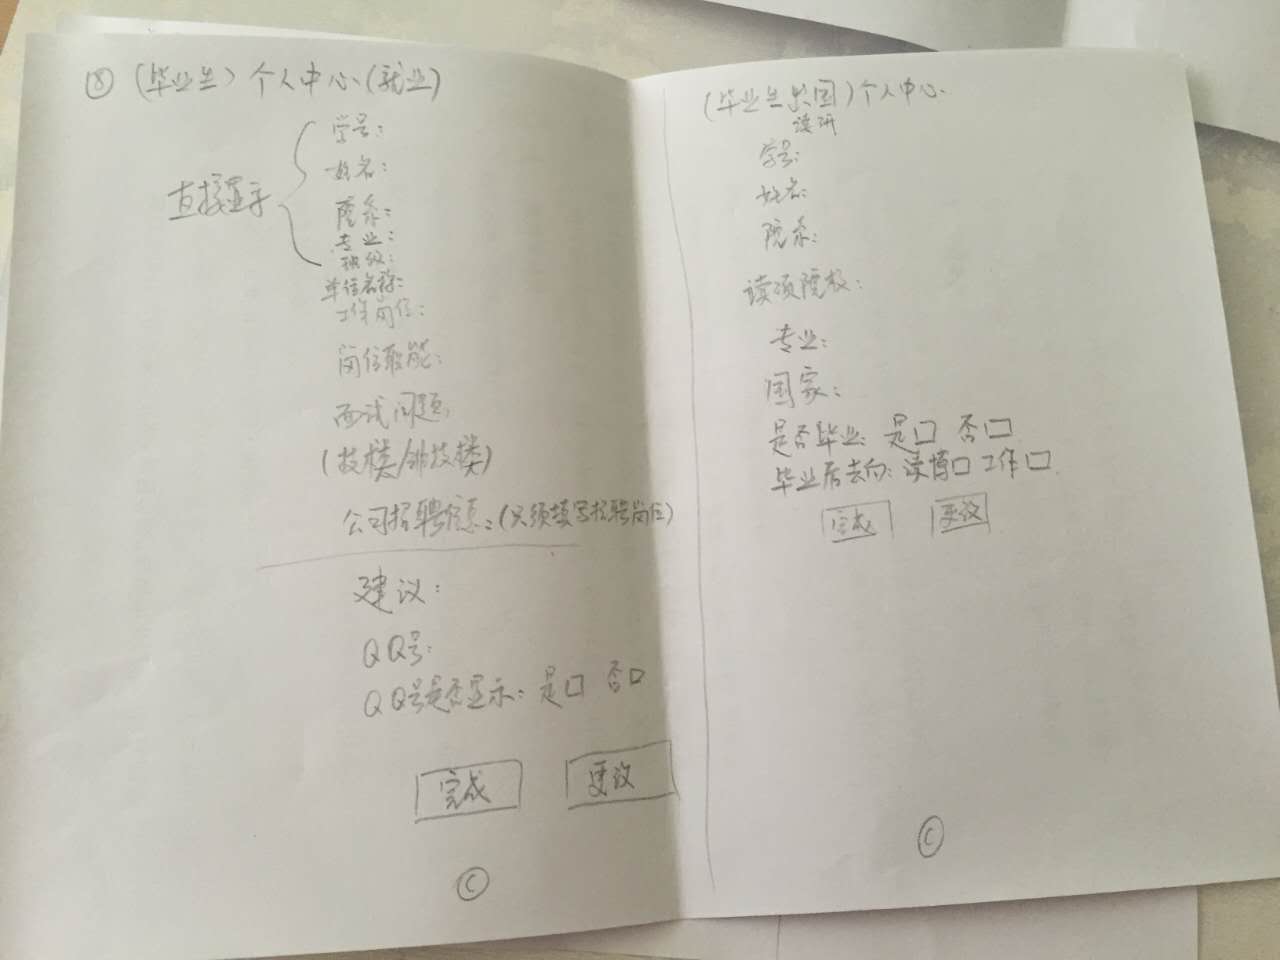 ⑧ (毕业生) 个人中心 (就业)
直接显示
学号:
姓名:
院系:
专业:
班级:
单位名称:
工作岗位:
岗位职能:
面试问题:
(技楼/非技楼)
公司招聘信息: (只须填写招聘岗位)
建议:
QQ号:
QQ号是否显示: 是□ 否□
完成 更改
Ⓒ
(毕业生出国) 个人中心
读研
学号:
姓名:
院系:
读硕院校:
专业:
国家:
是否毕业: 是□ 否□
毕业后去向: 读博□ 工作□
完成 更改
Ⓒ